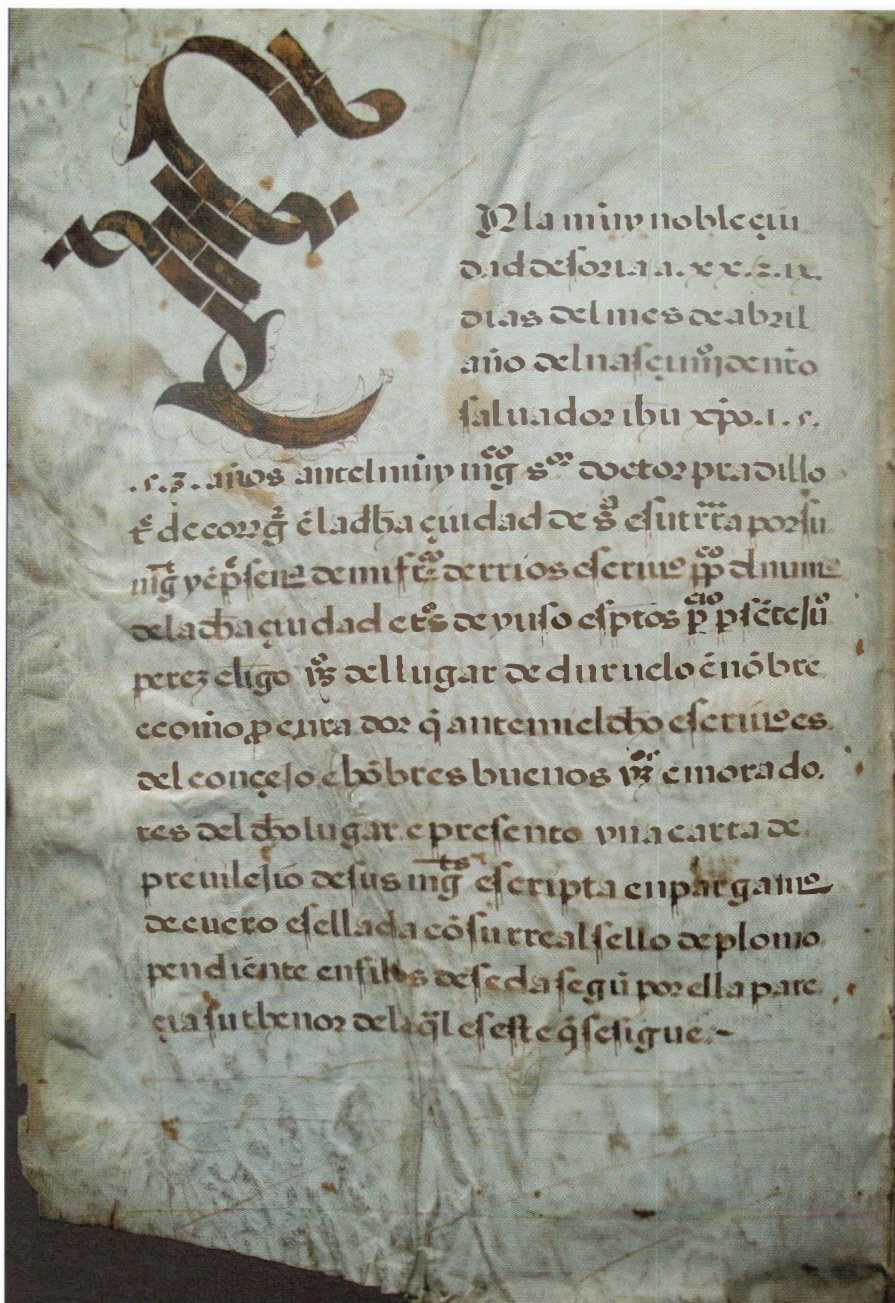 EN la muy noble çiu
dad de soria a . x x . z . ix .
dias del mes de abril
año del nasçimi͂o de nr͂o
saluador ihu xp͂o . 1 . 5 .
. 5 . z . años ante el muy mag͂co sor doctor pradillo
te de corrg͂or e͂ la dh͂a çiudad de sa e su trr͂a por su
mg͂t y e͂ pr͂sençia de mi fr͂co de rrios escriuo pp͂co del numo
de la dh͂a çiudad e tos de yuso esp͂tos pr͂çio pr͂sẽte juo
perez eligo vzo del lugar de duruelo e͂ no͂bre
e como procurador q͂ ante mi el dh͂o escriuo es
del conçejo e ho͂bres buenos vzos e morado.
res del dh͂o lugar e presento vna carta de
preuilejio de sus mg͂ts escripta en pargamio
de cuero e sellada co͂ su rreal sello de plomo
pendie͂nte en filos de seda segu͂ por ella pare
çia su thenor de la q͂l es este q͂ se sigue. ~